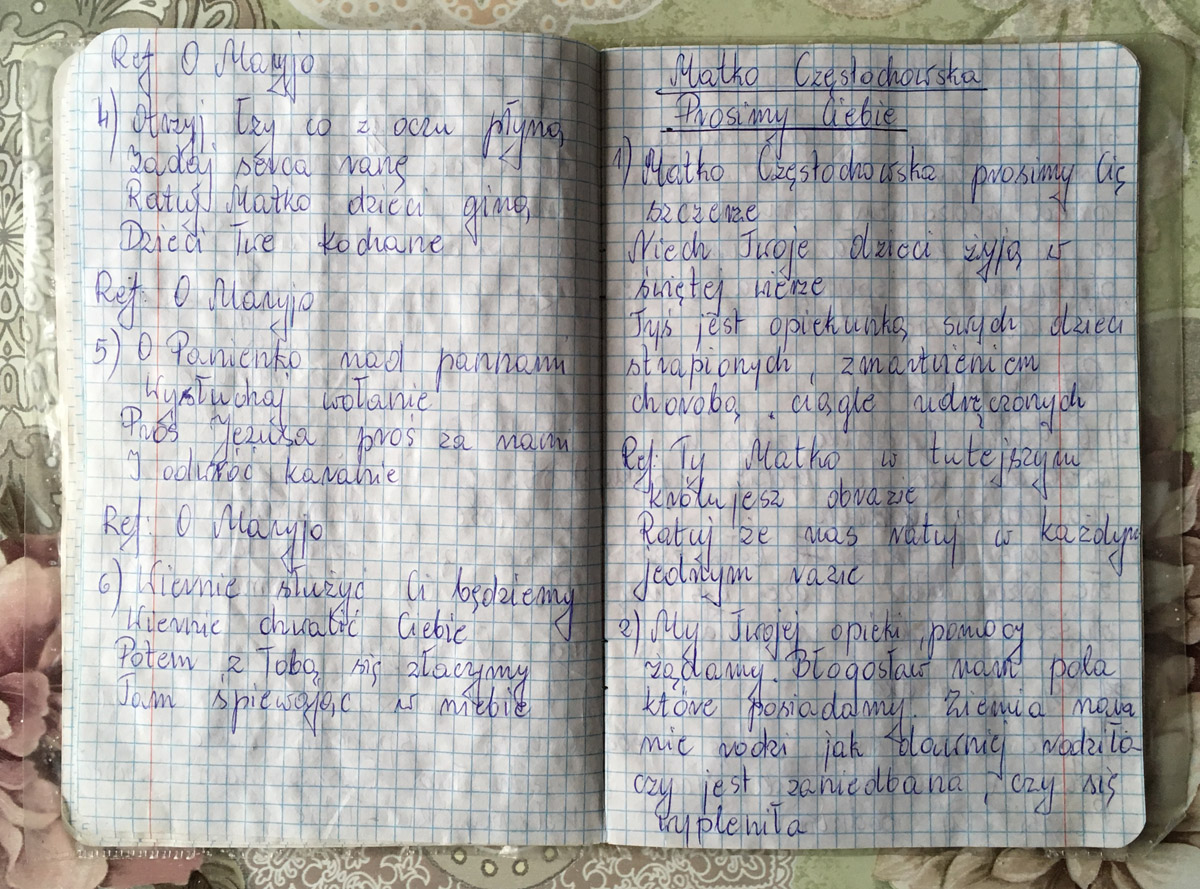 Ref O Maryjo
4) Otrzyj łzy co z oczu płyną
Zadaj serca ranę
Ratuj Matko dzieci giną
Dzieci Twe kochane
Ref: O Maryjo
5) O Panienko nad pannami
Wysłuchaj wołanie
Proś Jezusa proś za nami
I odwróć karanie
Ref: O Maryjo
6) Wiernie służyć Ci będziemy
Wiernie chwalić Ciebie
Potem z Tobą się złączymy
Tam śpiewając w niebie
Matko Częstochowska
Prosimy Ciebie
1) Matko Częstochowska prosimy Cię
szczerze
Niech Twoje dzieci żyją w
świętej wierze
Tyś jest opiekunką swych dzieci
strapionych, zmartwieniem
chorobą, ciągle udręczonych
Ref: Ty Matko w tutejszym
królujesz obrazie
Ratuj że nas ratuj w każdym
jednym razie
2) My Twojej opieki, pomocy
żądamy. Błogosław nam pola
które posiadamy. Ziemia nasza
nie rodzi jak dawniej rodziła
czy jest zaniedbana, czy się
wypleniła